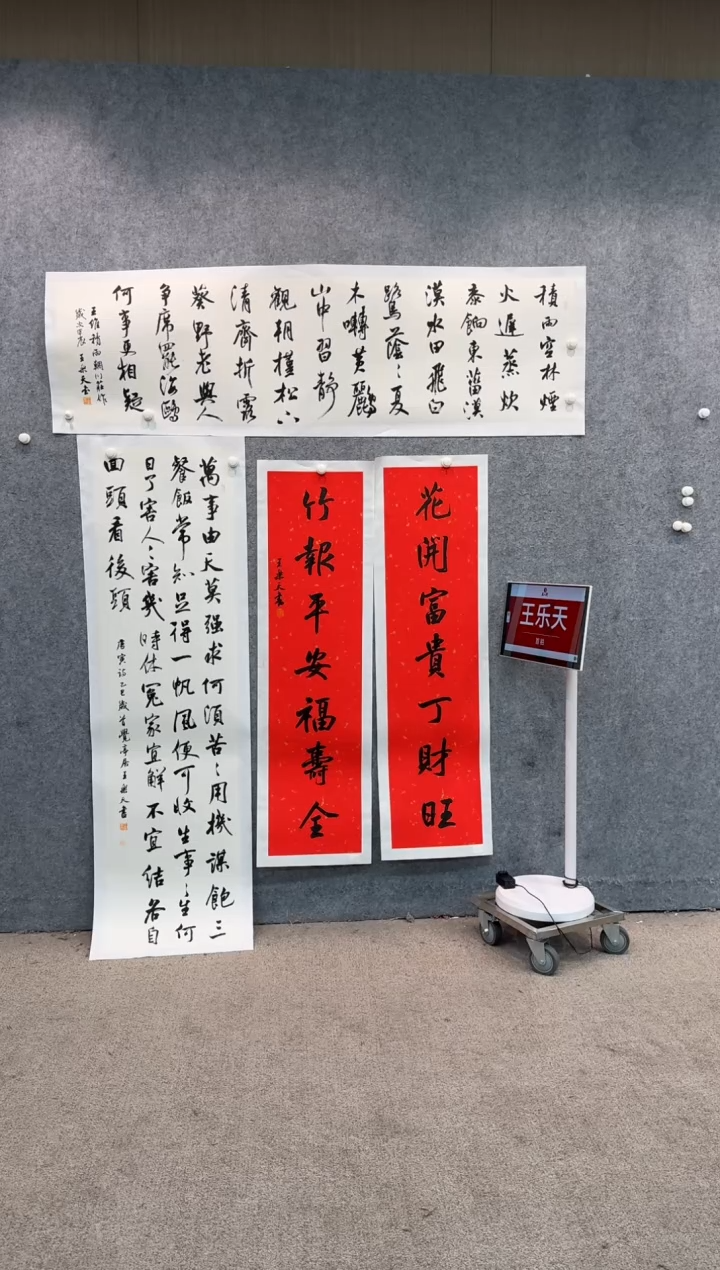 積雨空林煙
火遲蒸炊
黍餉東菑漠
漠水田飛白
鷺蔭〻夏
木囀黃鸝
山中習靜
觀朝槿松下
清齋折露
葵野老與人
爭席罷海鷗
何事更相疑
王維積雨輞川莊作
歲次甲辰王樂天書
花開富貴丁財旺
竹報平安福壽全
王樂天書
萬事由天莫強求何須苦〻用機謀飽三
餐飯常知足得一帆風便可收生事〻生何
日了害人〻害幾時休冤家宜解不宜結各自
回頭看後頭
唐寅詩乙巳歲首覺亭居王樂天書
王乐天